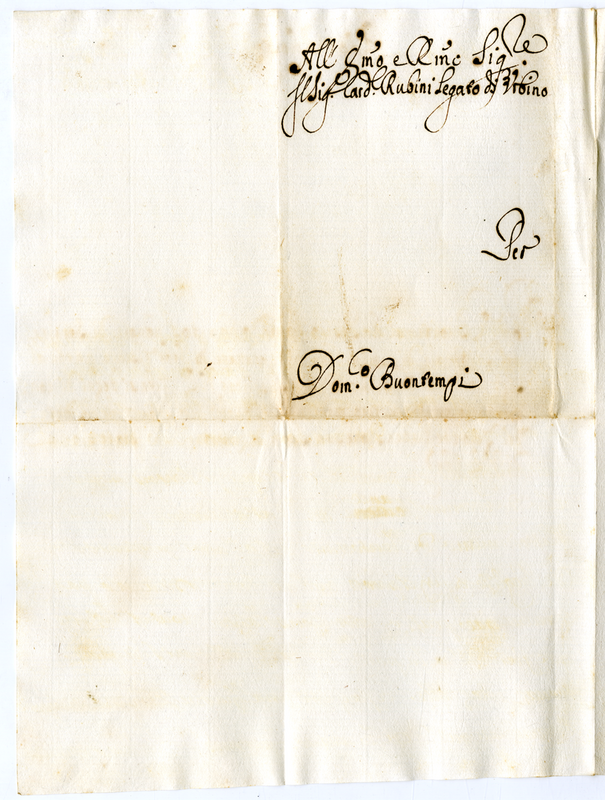 All' Emo e Rmo Sig.re
Il Sig.r Card.l Rubini Legato d'Urbino
Per
Dom.co Buontempi